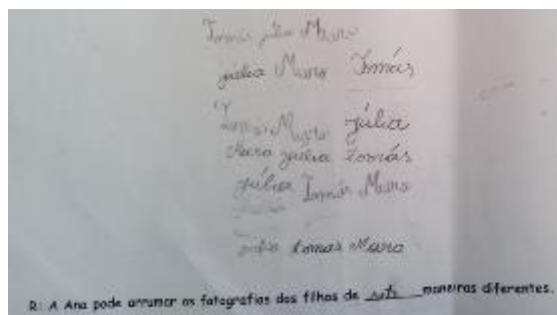 Tomás júlia Muro
júlia Muro Tomás
Tomás Muro júlia
Muro júlia tomás
júlia Tomás Muro
júlia tomas Muro
R: A Ana pode arrumar as fotografias dos filhos de sete maneiras diferentes.